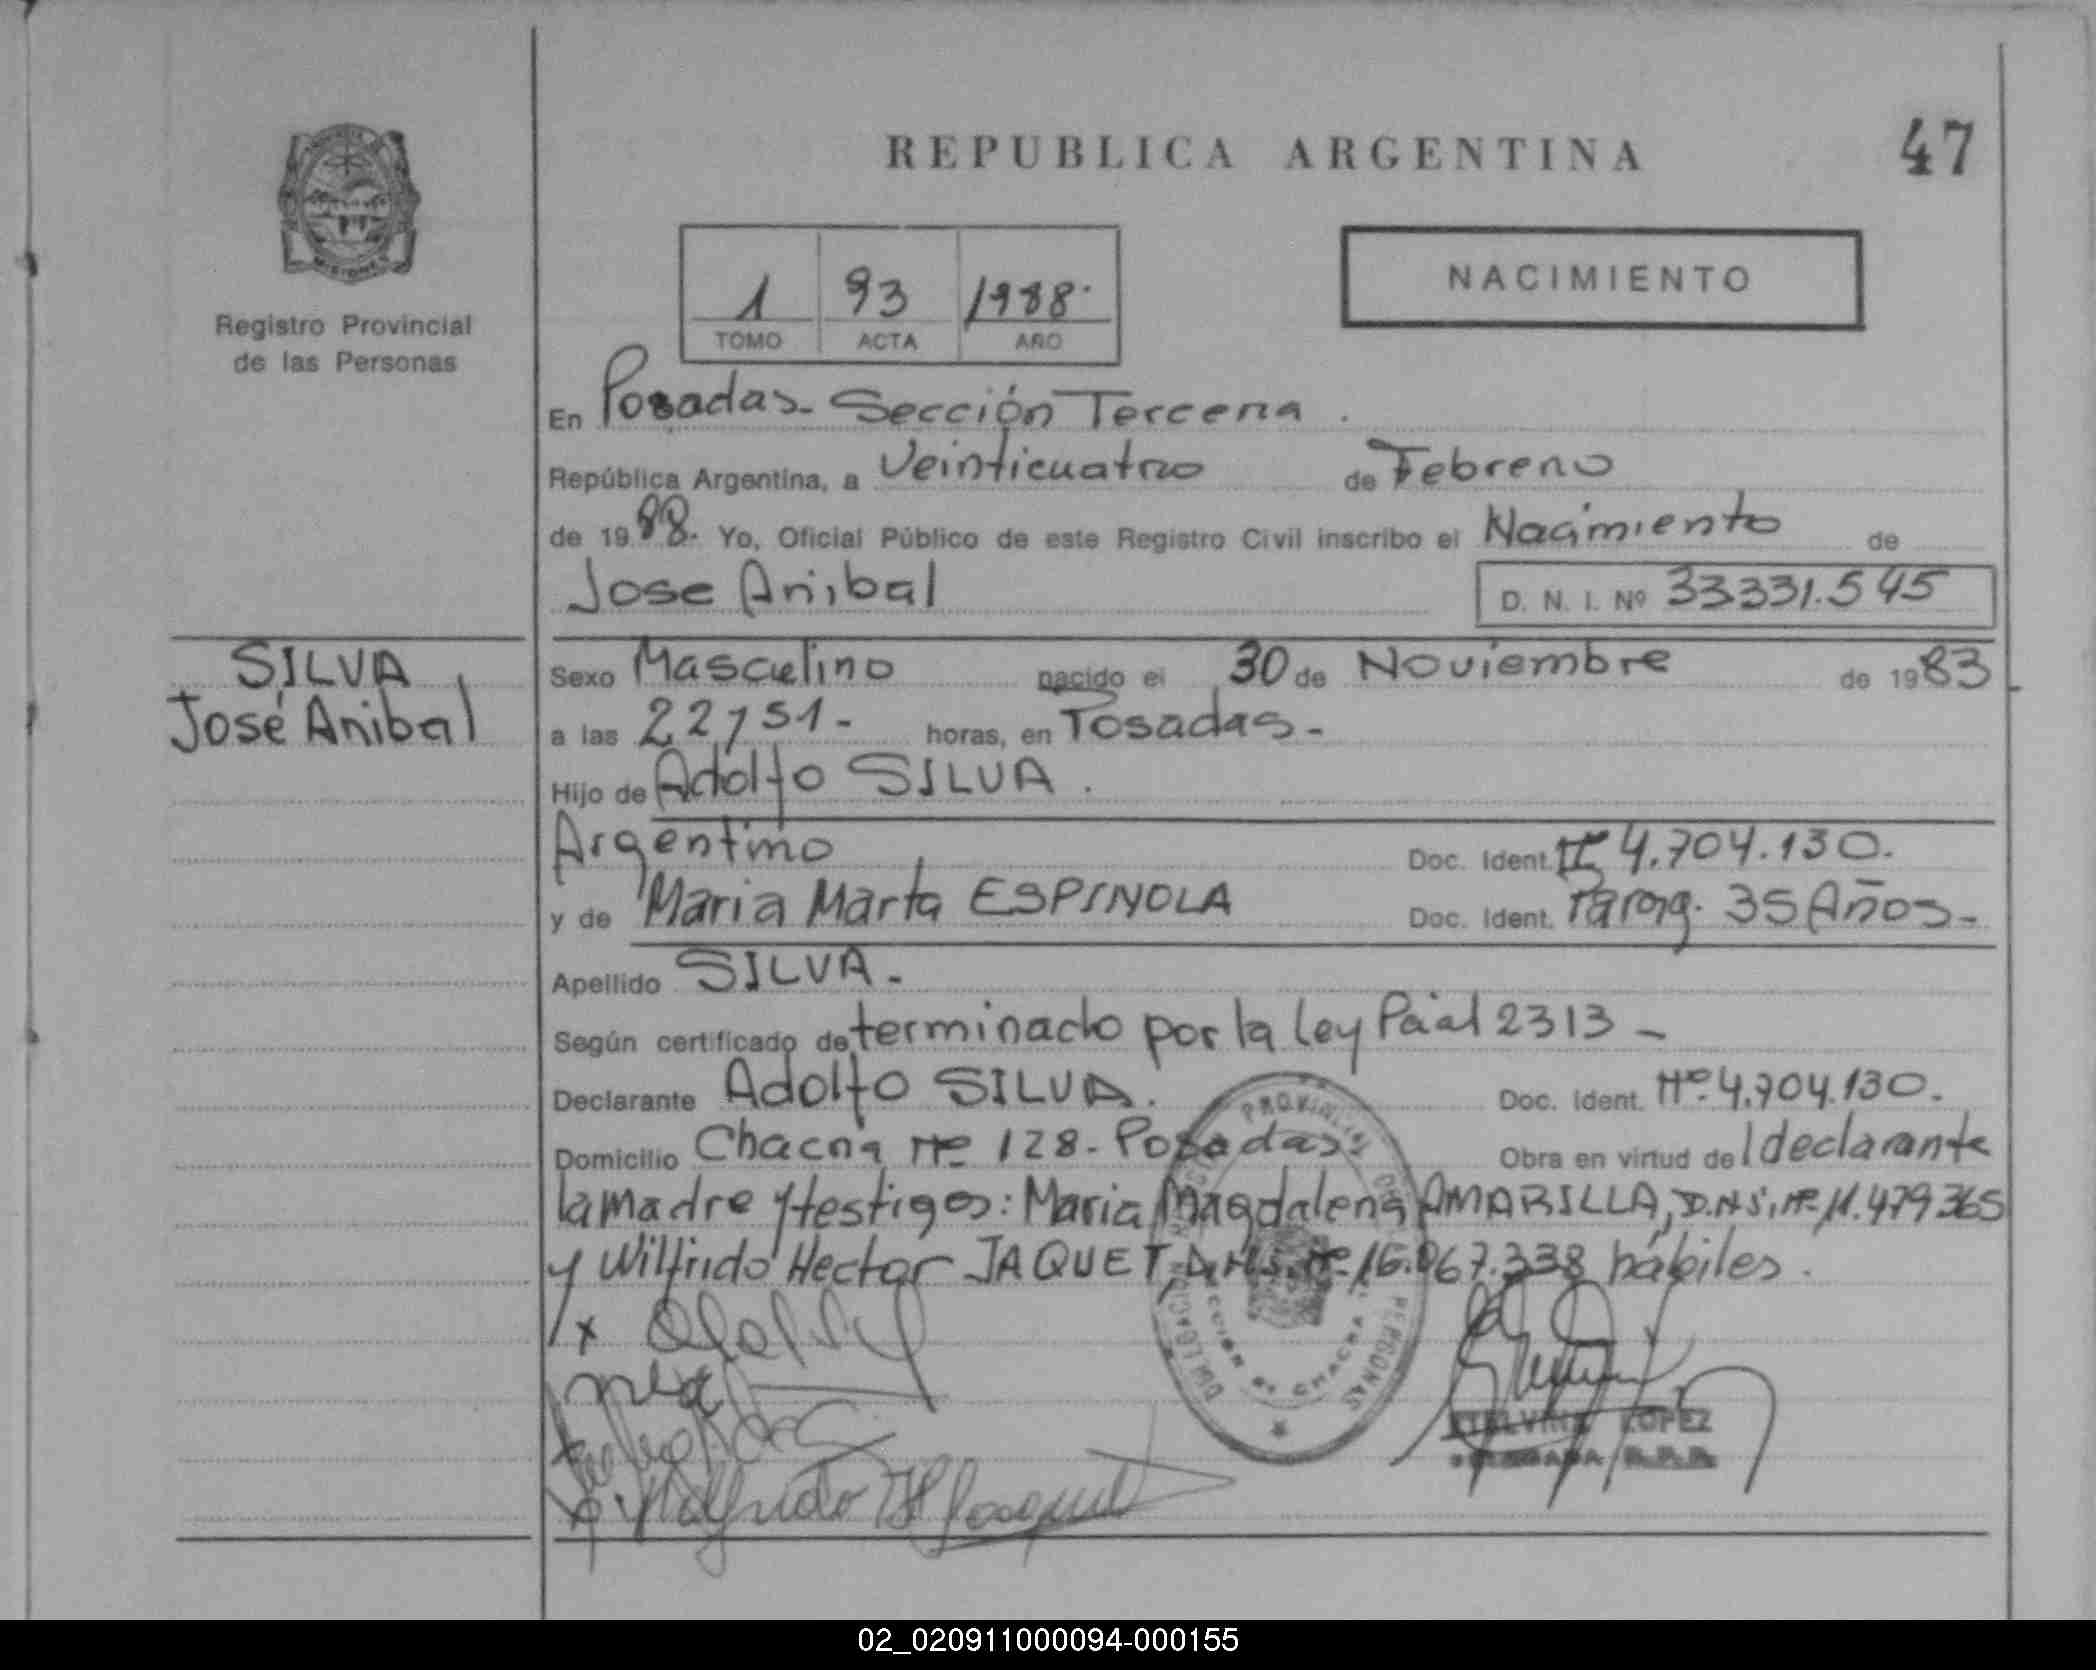 REPUBLICA ARGENTINA
47
MISIONES
Registro Provincial
de las Personas
1 93 1988.
TOMO ACTA AÑO
NACIMIENTO
En Posadas - Sección Tercera.
República Argentina, a Veinticuatro de Febrero
de 1988. Yo, Oficial Público de este Registro Civil inscribo el Nacimiento de
Jose Anibal D. N. I. Nº 33.331.545
SILVA
José Anibal
Sexo Masculino nacido el 30 de Noviembre de 1983
a las 22,51- horas, en Posadas -
Hijo de Adolfo SILVA.
Argentino Doc. Ident. Nº 4.704.130.
y de Maria Marta ESPINOLA Doc. Ident. Parag. 35 Años -
Apellido SILVA -
Según certificado determinado por la Ley Pcial 2313 -
Declarante Adolfo SILVA. Doc. Ident. Nº 4.704.130.
Domicilio Chacra Nº 128 - Posadas Obra en virtud del declarante
la madre y testigos: Maria Magdalena AMARILLA, D.N.I. Nº 11.479.365
y Wilfrido Hector JAQUET, D.N.I. Nº 16.067.338 hábiles.
LOPEZ
02_020911000094-000155